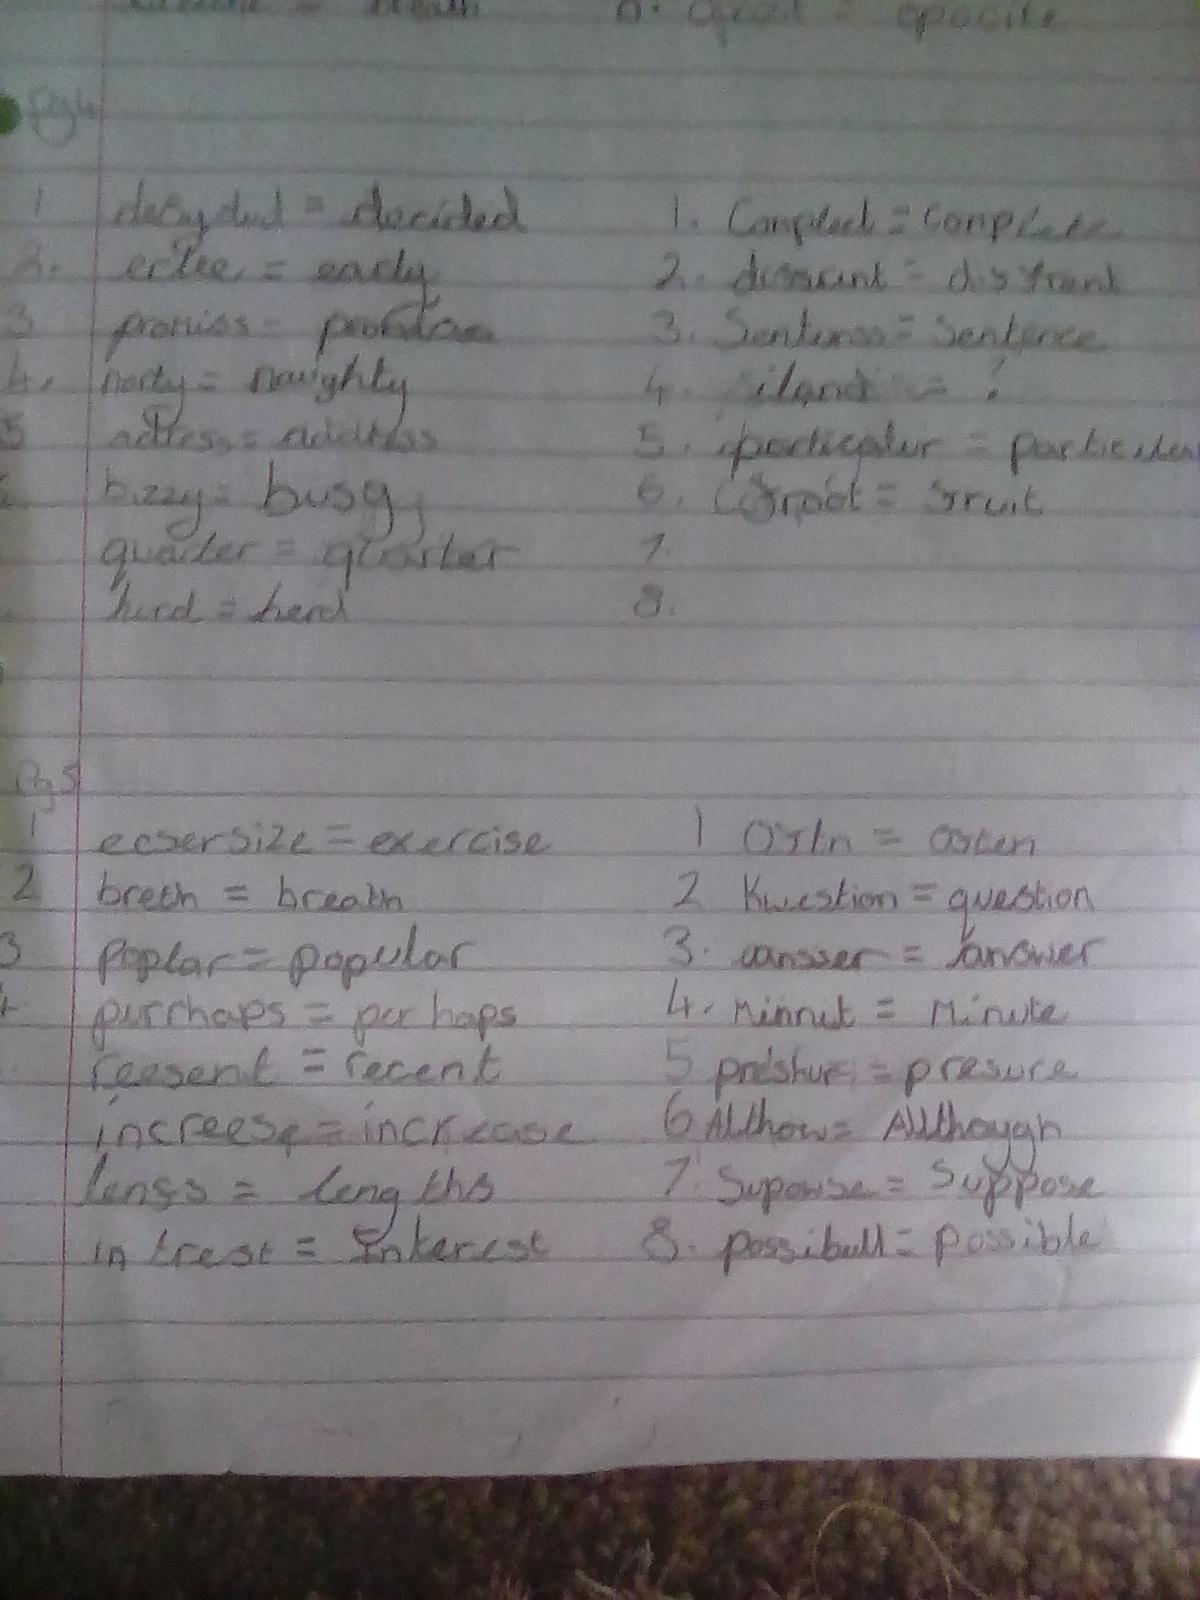 Pg4
1 desyded = decided
2. erlee = early
3 promiss = promise
4. norty = naughty
5 adress = address
bizzy = busy
quarter = quarter
herd = herd
1. Compleet = Complete
2. =
3. Sentenss = Sentence
4. iland = ?
5. particular = particular
6. =
7.
8.
Pg5
1 ecsersize = exercise
2 breth = breath
3 poplar = popular
4. purrhaps = perhaps
reesent = recent
increese = increase
lengs = lengths
intrest = Interest
1 Ofln = Often
2 Kwestion = question
3. ansser = answer
4. Minnit = Minute
5 preshur = presure
6 Allthow = Allthough
7. Supowse = Suppose
8. possibull = possible